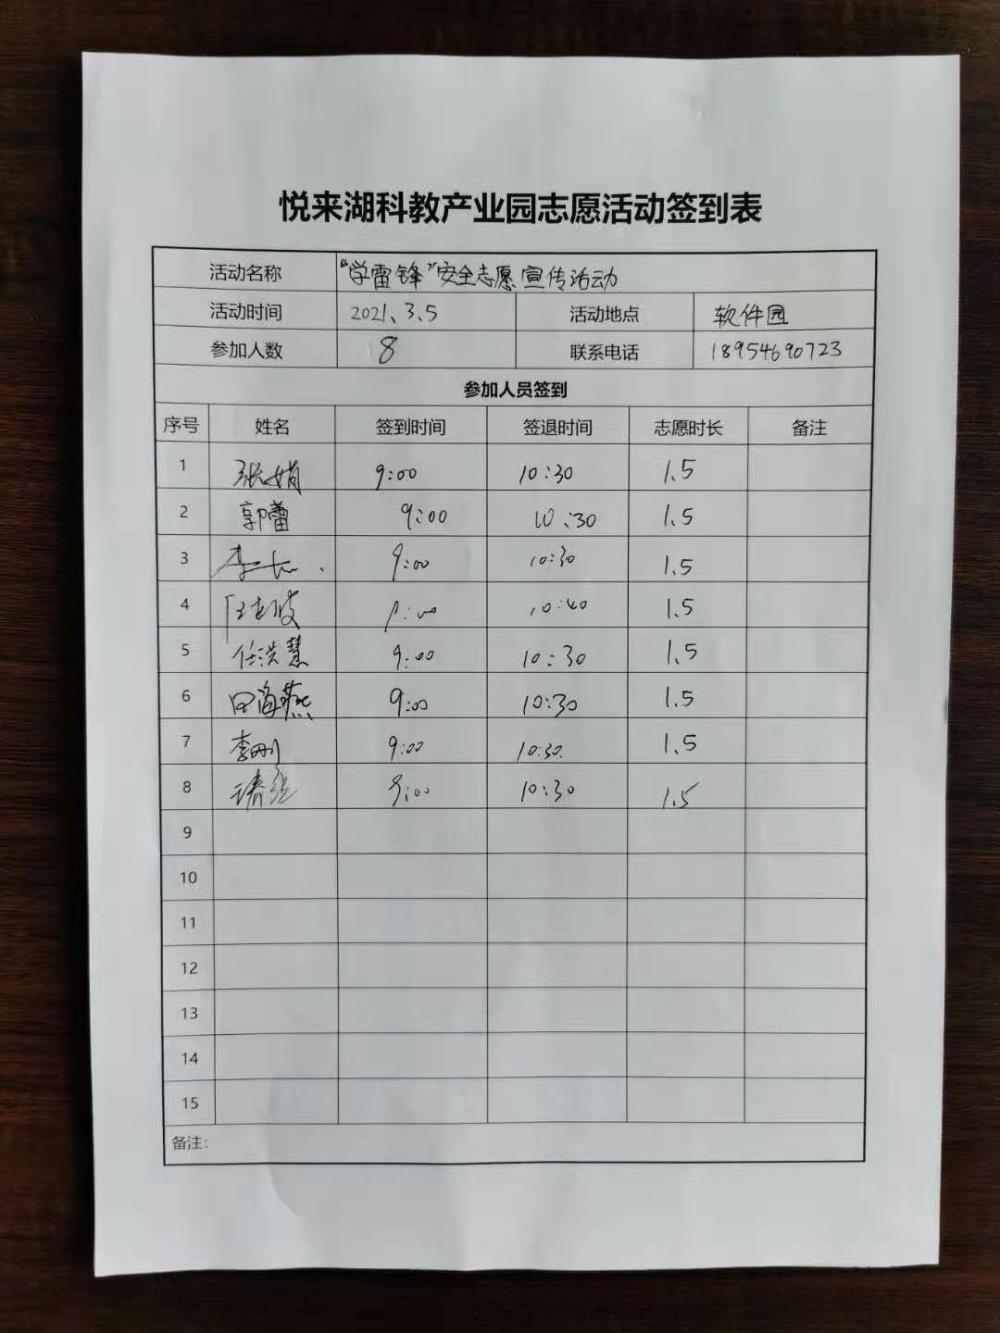 悦来湖科教产业园志愿活动签到表
活动名称 “学雷锋”安全志愿宣传活动
活动时间 2021、3.5 活动地点 软件园
参加人数 8 联系电话 18954690723
参加人员签到
序号 姓名 签到时间 签退时间 志愿时长 备注
1 张娟 9:00 10:30 1.5
2 郭蕾 9:00 10:30 1.5
3 9:00 10:30 1.5
4 10:40 1.5
5 任洪慧 9:00 10:30 1.5
6 田海燕 9:00 10:30 1.5
7 李刚 9:00 10:30 1.5
8 9:00 10:30 1.5
9
10
11
12
13
14
15
备注: